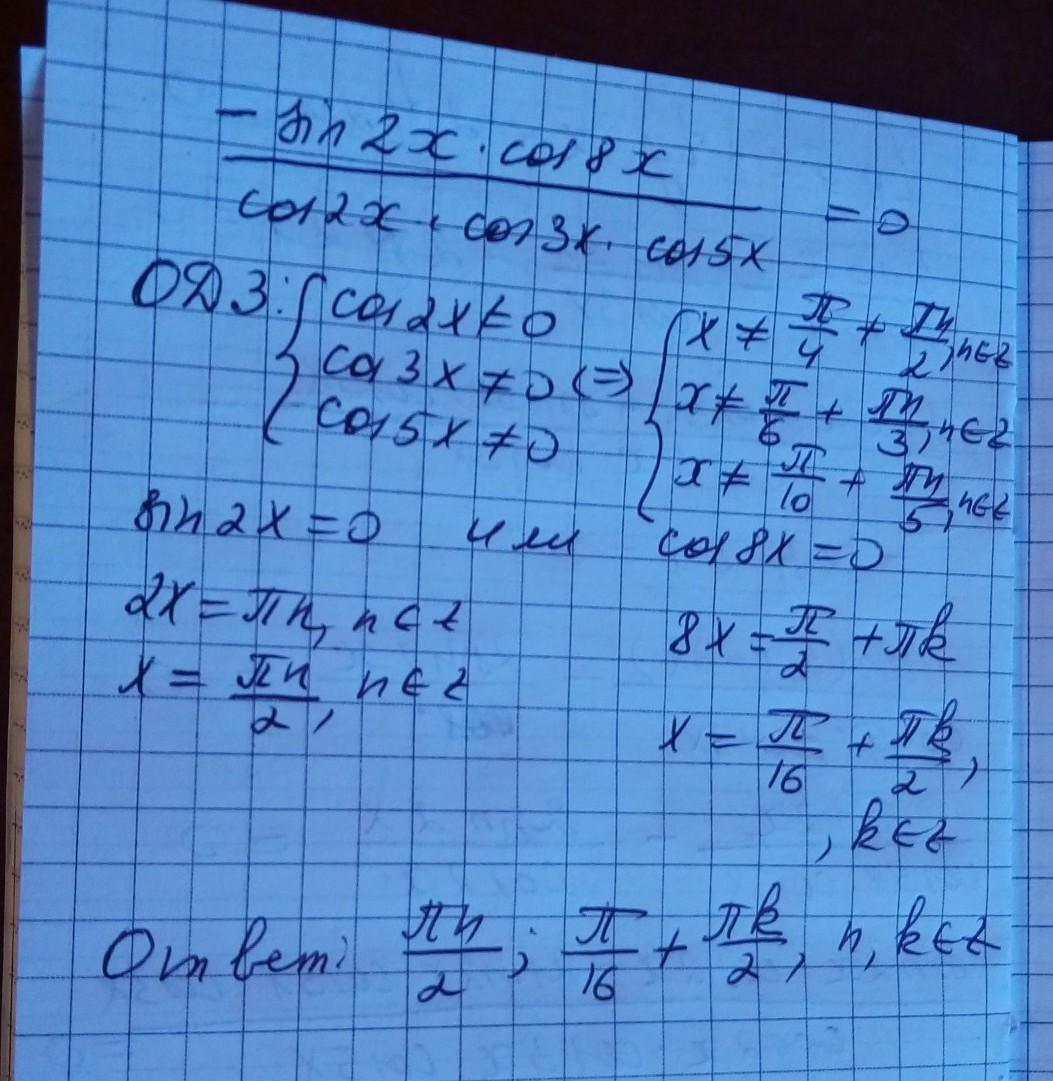 - sin 2x · cos 8x
cos 2x · cos 3x · cos 5x = 0
ОДЗ: { cos 2x ≠ 0
cos 3x ≠ 0
cos 5x ≠ 0 <=> { x ≠ π/4 + πn/2, n∈z
x ≠ π/6 + πn/3, n∈z
x ≠ π/10 + πn/5, n∈z
sin 2x = 0 или cos 8x = 0
2x = πn, n∈z 8x = π/2 + πk
x = πn/2, n∈z x = π/16 + πk/2,
, k∈z
Ответ: πn/2; π/16 + πk/2, n, k∈z